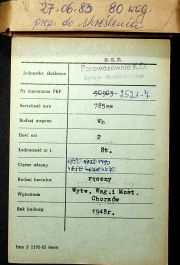 27.06.83 80 wag.
prop. do skreślenia
P.K.P.
Parowozownia K.D.
Jednostka służbowa
Nr inwentarza PKP 2521-7
Szerokość toru 785mm
Rodzaj wagonu Wn
Ilość osi 2
Ładowność w t 8t.
Ciężar własny
Rodzaj hamulca ręczny
Wytwórnia Wytw. Wag.i Most.
Chorzów
Rok budowy 1948r.